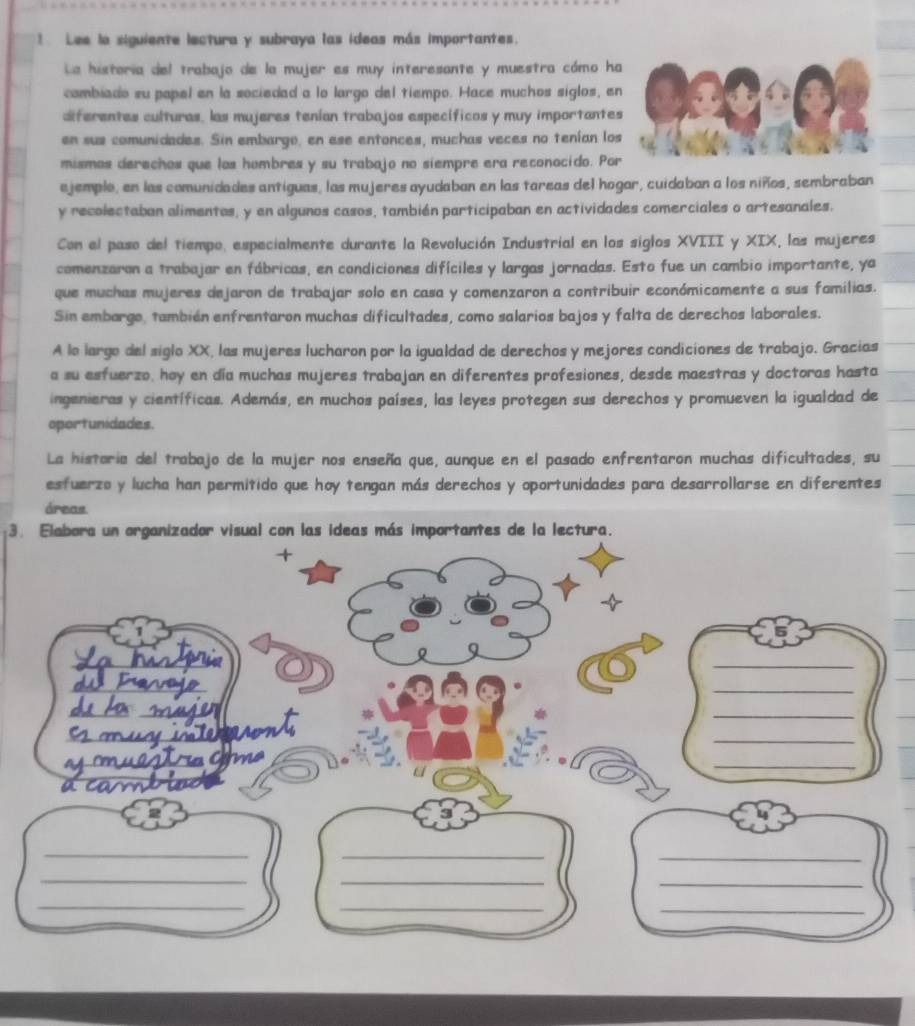 1. Lee la siguiente lectura y subraya las ideas más importantes.
La historia del trabajo de la mujer es muy interesante y muestra cómo ha
cambiado su papel en la sociedad a lo largo del tiempo. Hace muchos siglos, en
diferentes culturas, las mujeres tenían trabajos específicos y muy importantes
en sus comunidades. Sin embargo, en ese entonces, muchas veces no tenían los
mismos derechos que los hombres y su trabajo no siempre era reconocido. Por
ejemplo, en las comunidades antiguas, las mujeres ayudaban en las tareas del hogar, cuidaban a los niños, sembraban
y recolectaban alimentos, y en algunos casos, también participaban en actividades comerciales o artesanales.
Con el paso del tiempo, especialmente durante la Revolución Industrial en los siglos XVIII y XIX, las mujeres
comenzaron a trabajar en fábricas, en condiciones difíciles y largas jornadas. Esto fue un cambio importante, ya
que muchas mujeres dejaron de trabajar solo en casa y comenzaron a contribuir económicamente a sus familias.
Sin embargo, también enfrentaron muchas dificultades, como salarios bajos y falta de derechos laborales.
A lo largo del siglo XX, las mujeres lucharon por la igualdad de derechos y mejores condiciones de trabajo. Gracias
a su esfuerzo, hoy en día muchas mujeres trabajan en diferentes profesiones, desde maestras y doctoras hasta
ingenieras y científicas. Además, en muchos países, las leyes protegen sus derechos y promueven la igualdad de
oportunidades.
La historia del trabajo de la mujer nos enseña que, aunque en el pasado enfrentaron muchas dificultades, su
esfuerzo y lucha han permitido que hoy tengan más derechos y oportunidades para desarrollarse en diferentes
áreas.
3. Elabora un organizador visual con las ideas más importantes de la lectura.
1
La historia
del
de la mujer
es muy
y muestra como
a cambiado
2
3
4
5